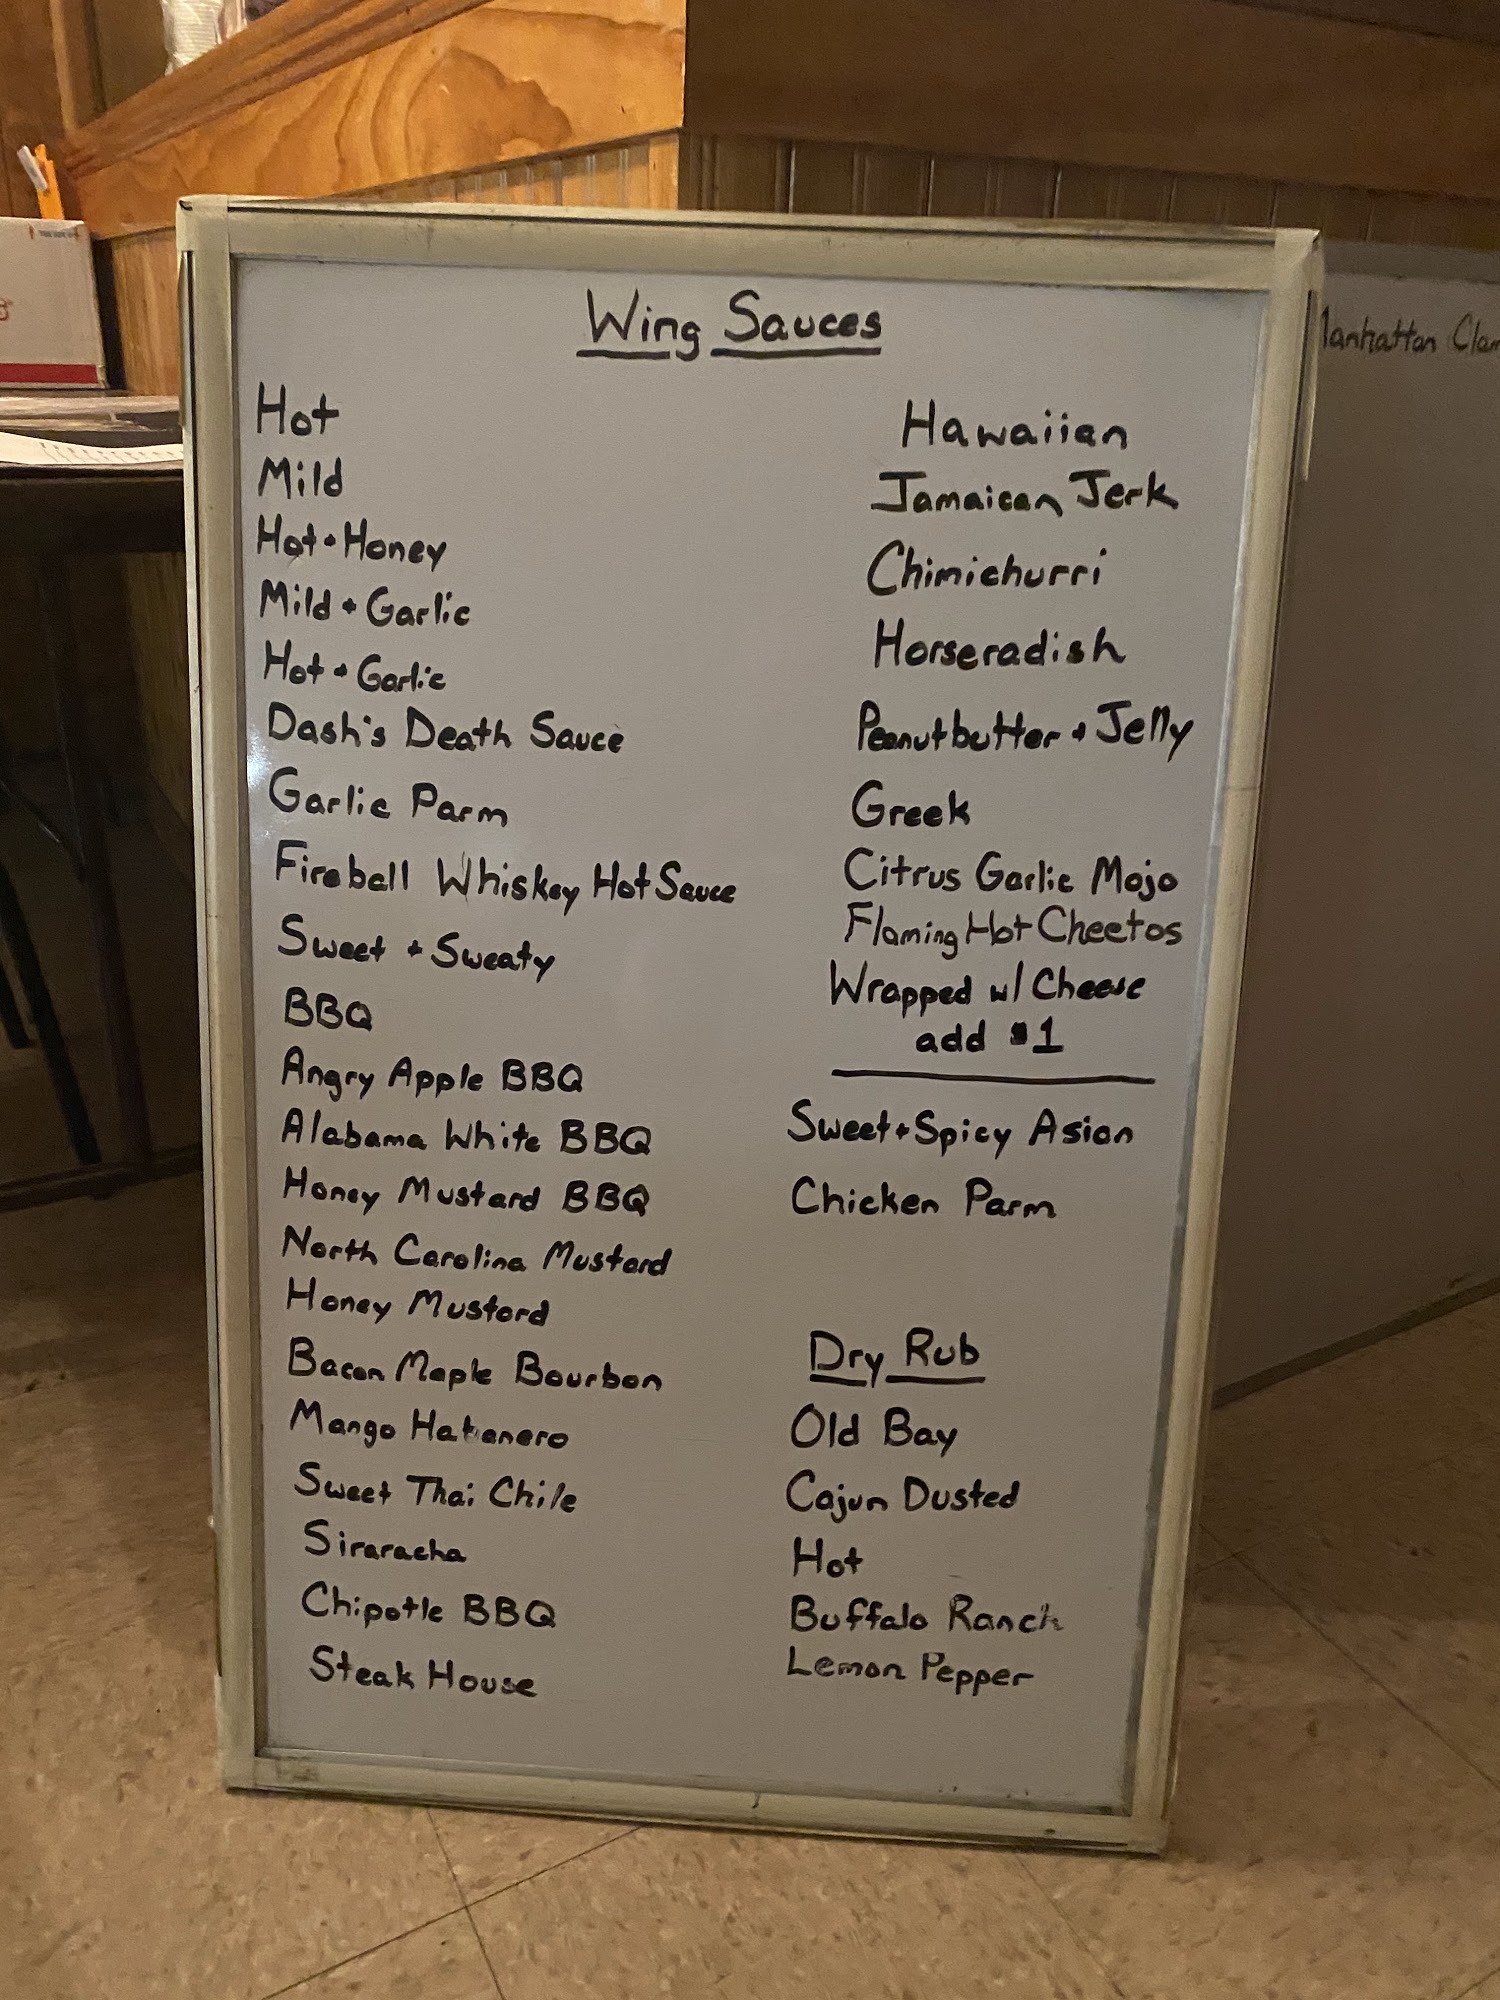 Wing Sauces
Hot
Mild
Hot + Honey
Mild + Garlic
Hot + Garlic
Dash's Death Sauce
Garlic Parm
Fireball Whiskey Hot Sauce
Sweet + Sweaty
BBQ
Angry Apple BBQ
Alabama White BBQ
Honey Mustard BBQ
North Carolina Mustard
Honey Mustard
Bacon Maple Bourbon
Mango Habenero
Sweet Thai Chile
Siraracha
Chipotle BBQ
Steak House
Hawaiian
Jamaican Jerk
Chimichurri
Horseradish
Peanutbutter + Jelly
Greek
Citrus Garlic Mojo
Flaming Hot Cheetos
Wrapped w/ Cheese
add $1
Sweet + Spicy Asian
Chicken Parm
Dry Rub
Old Bay
Cajun Dusted
Hot
Buffalo Ranch
Lemon Pepper
Manhattan Clam